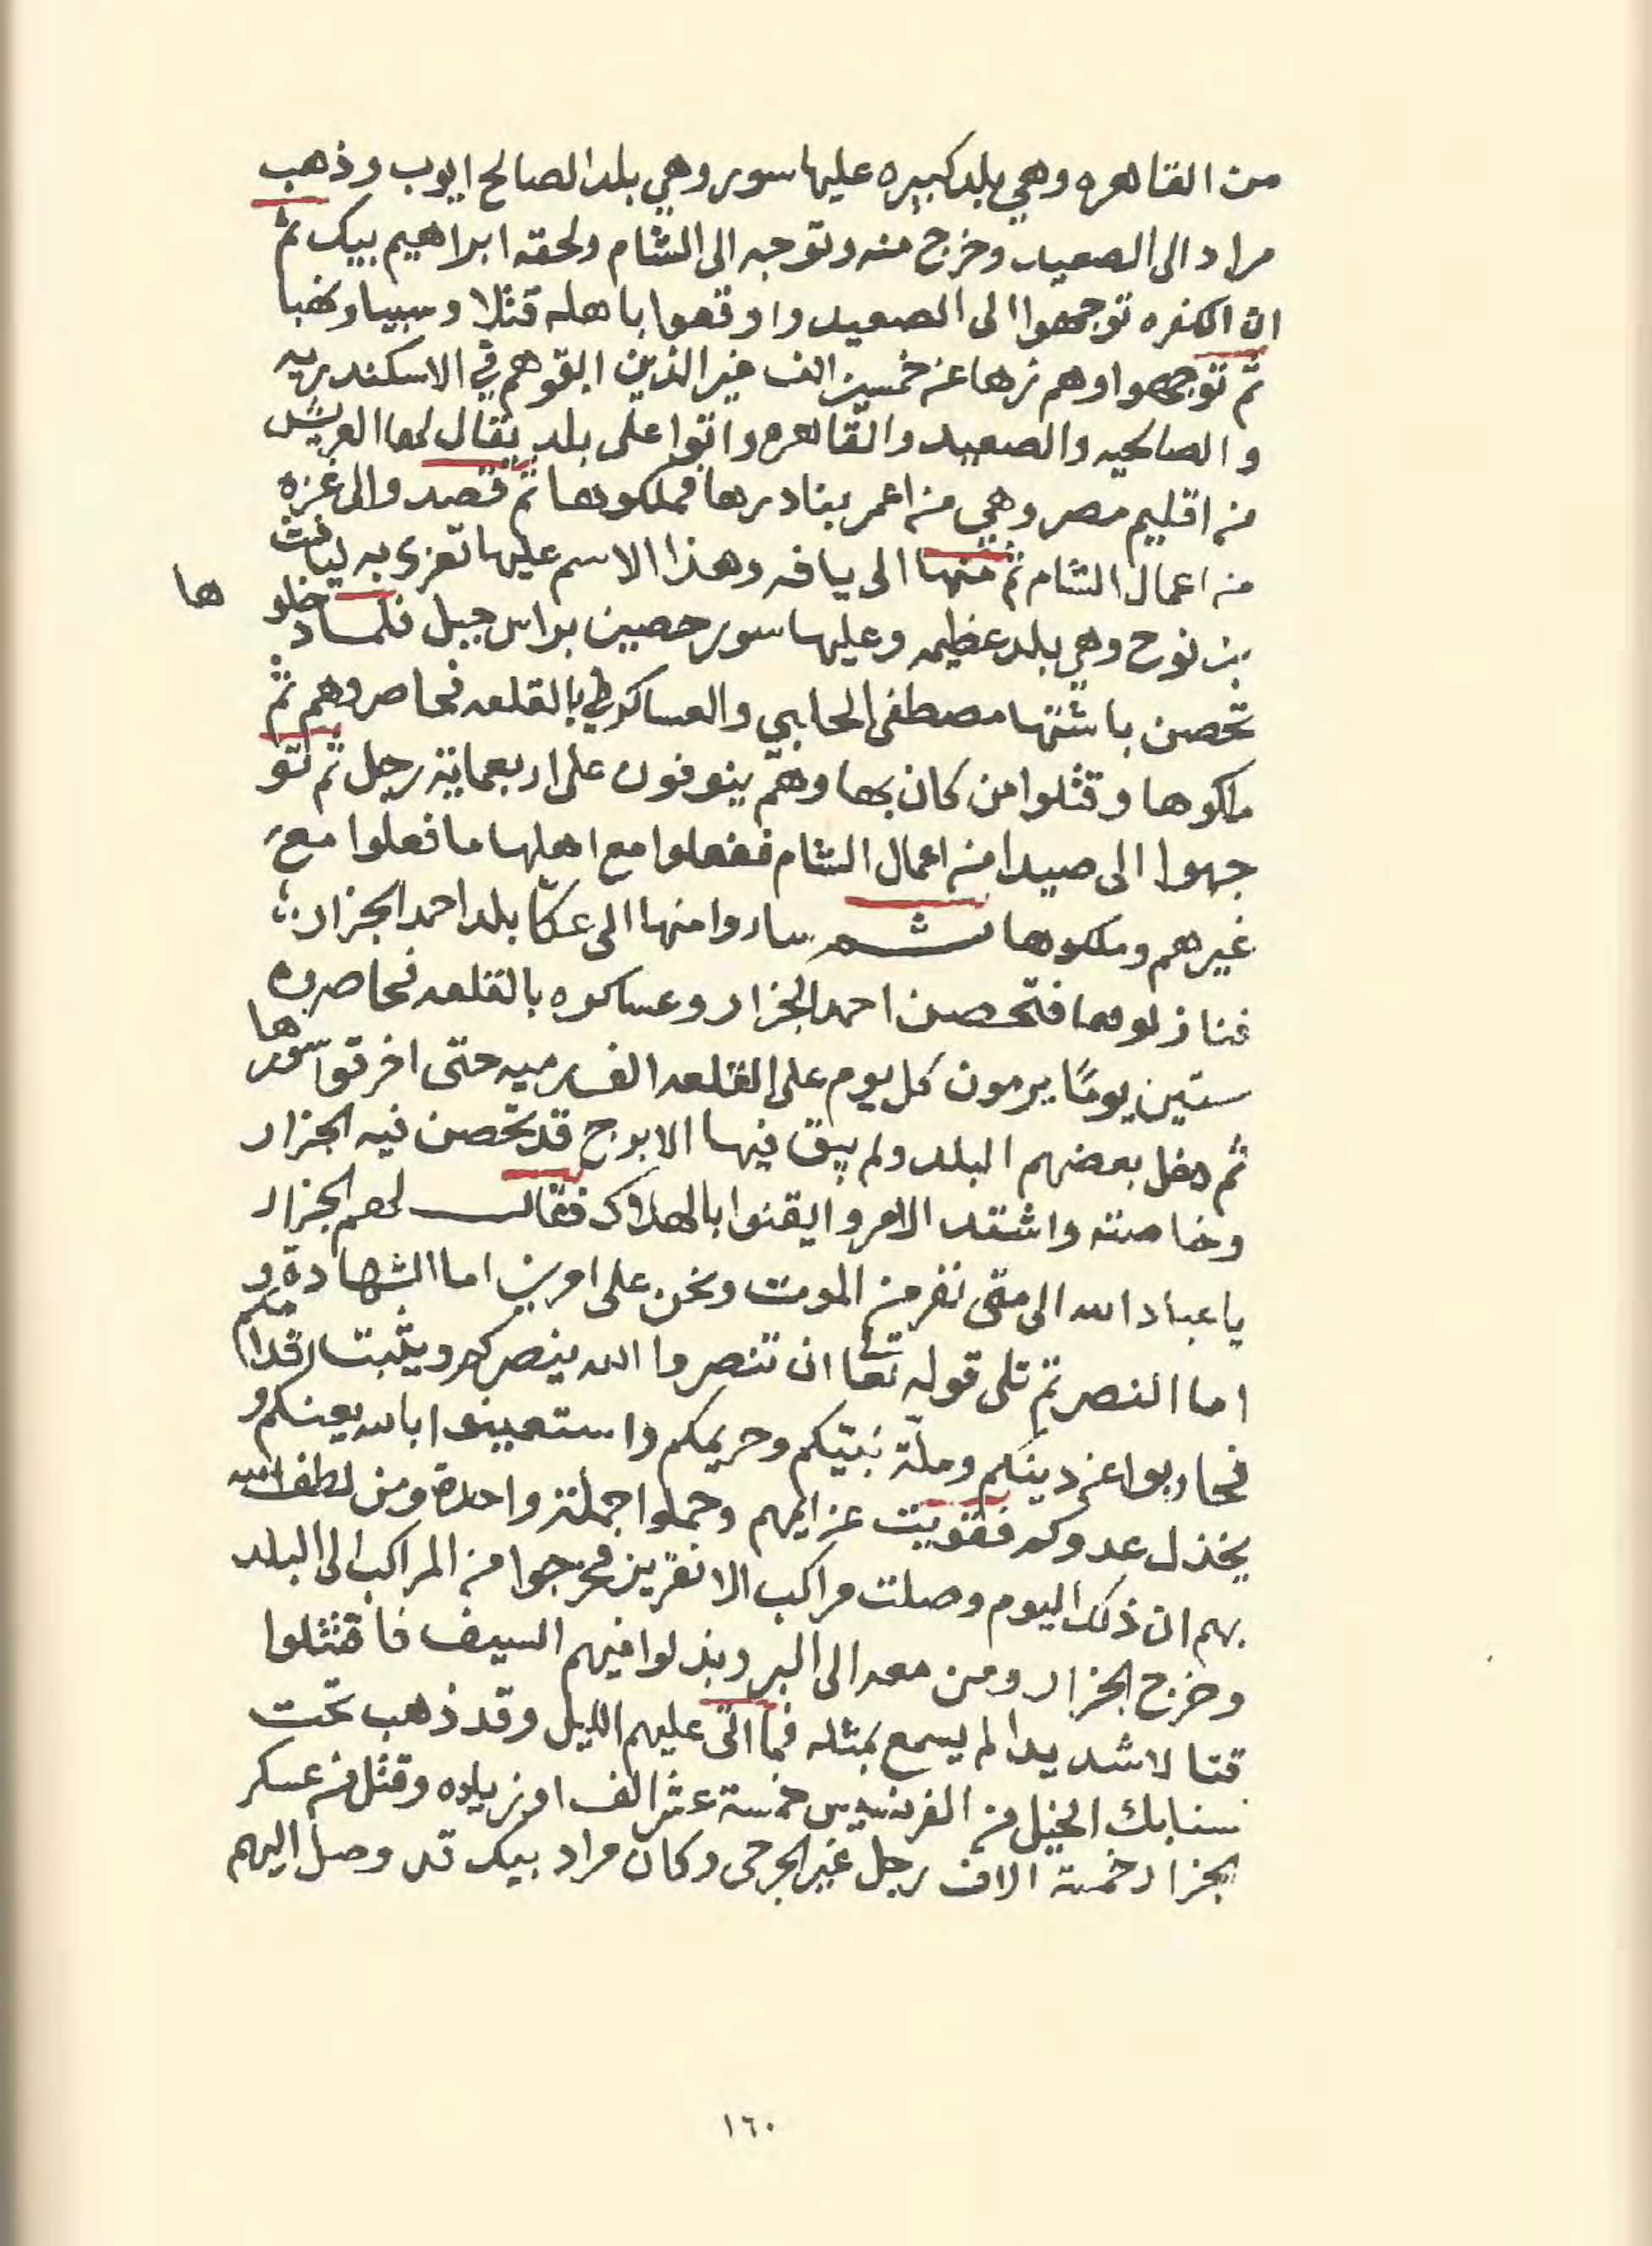 من القاهره وهي بلد كبيره عليها سور وهي بلد الصالح ايوب وذهب
مراد الى الصعيد وخرج منه وتوجه الى الشام ولحقه ابراهيم بيك ثم
ان الكفره توجهوا الى الصعيد واوقعوا باهله قتلا وسبيا ونهبا
ثم توجهوا وهم زها عن خمسين الف غير الذين ابقوهم في الاسكندريه
والصالحيه والصعيد والقاهره واتوا على بلد يقال لها العريش
من اقليم مصر وهي من اعمر بنادرها فملكوها ثم قصدوا الى غزه
من اعمال الشام ثم منها الى يافه وهذا الاسم عليها تعزى به ليافث
بن نوح وهي بلد عظيمه وعليها سور حصين براس جبل فلما دخلو ها
تحصن باشتها مصطفى الحابي والعساكر بالقلعه فحاصروهم ثم
ملكوها وقتلوا من كان بها وهم ينوفون على اربعماية رجل ثم تو
جهوا الى صيدا من اعمال الشام ففعلوا مع اهلها ما فعلوا مع
غيرهم وملكوها ثم ساروا منها الى عكّا بلد احمد الجزار
فنازلوها فتحصن احمد الجزار وعساكره بالقلعه فحاصره
ستين يومًا يرمون كل يوم على القلعه الف رميه حتى اخرقوا سورها
ثم دخل بعضهم البلد ولم يبق فيها الا برج قد تحصن فيه الجزار
وخاصته واشتد الامر وايقنوا بالهلاك فقال لهم الجزار
يا عباد الله الى متى نفر من الموت ونحن على امرين اما الشهادة و
اما النصر ثم تلى قوله تعا ان تنصروا الله ينصركم ويثبت اقدامكم
فحاربوا عن دينكم وملّة نبيّكم وحريمكم واستعينوا بالله يعينكم و
يخذل عدوكم فقويت عزايمهم وحملوا جملة واحدة ومن لطف الله
بهم ان ذلك اليوم وصلت مراكب الانقريز فخرجوا من المراكب الى البلد
وخرج الجزار ومن معه الى البر وبذلوا فيهم السيف فاقتتلوا
قتالا شديدا لم يسمع بمثله فما اتى عليهم الليل وقد ذهب تحت
سنابك الخيل من الفرنسيس خمسة عشر الف او زياده وقتل من عسكر
الجزار خمسة الاف رجل غير الجرحى وكان مراد بيك قد وصل اليهم
١٦٠